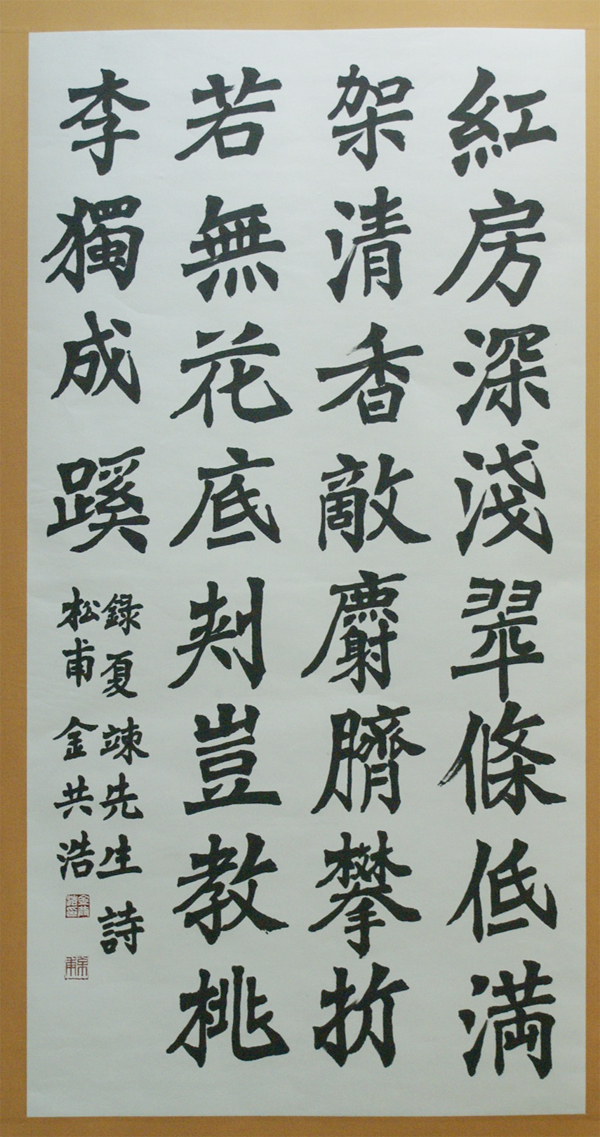 紅房深淺翠條低満
架清香敵麝臍攀折
若無花底刺豈教桃
李獨成蹊
錄夏竦先生詩
松甫 金共浩